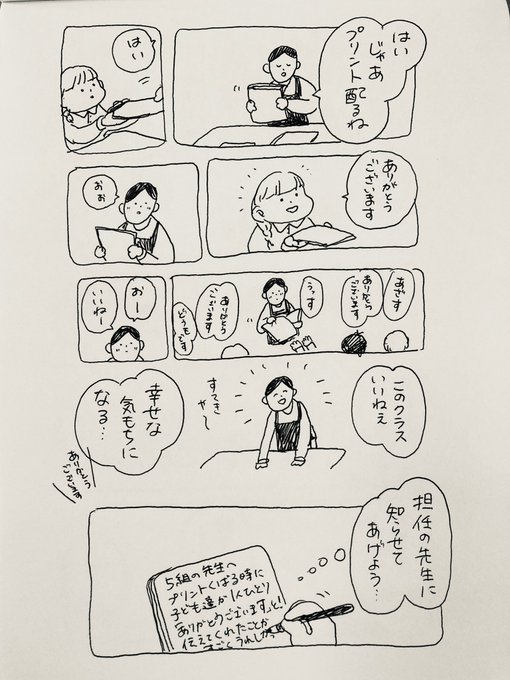 はい
じゃあ
プリント配るね
はい
ありがとう
ございます
おぉ
あざす
ありがとう
ございます
うーす
ありがとう
ございます
どうもです
おー
いいねー
このクラス
いいねぇ
すてき
や〜
幸せな
気もちに
なる…
ありがとう
ございます
担任の先生に
知らせて
あげよう…
5組の先生へ
プリントくばる時に
子ども達が1人ひとり
「ありがとうございます」と!
伝えてくれたことが
すごくうれしかっ